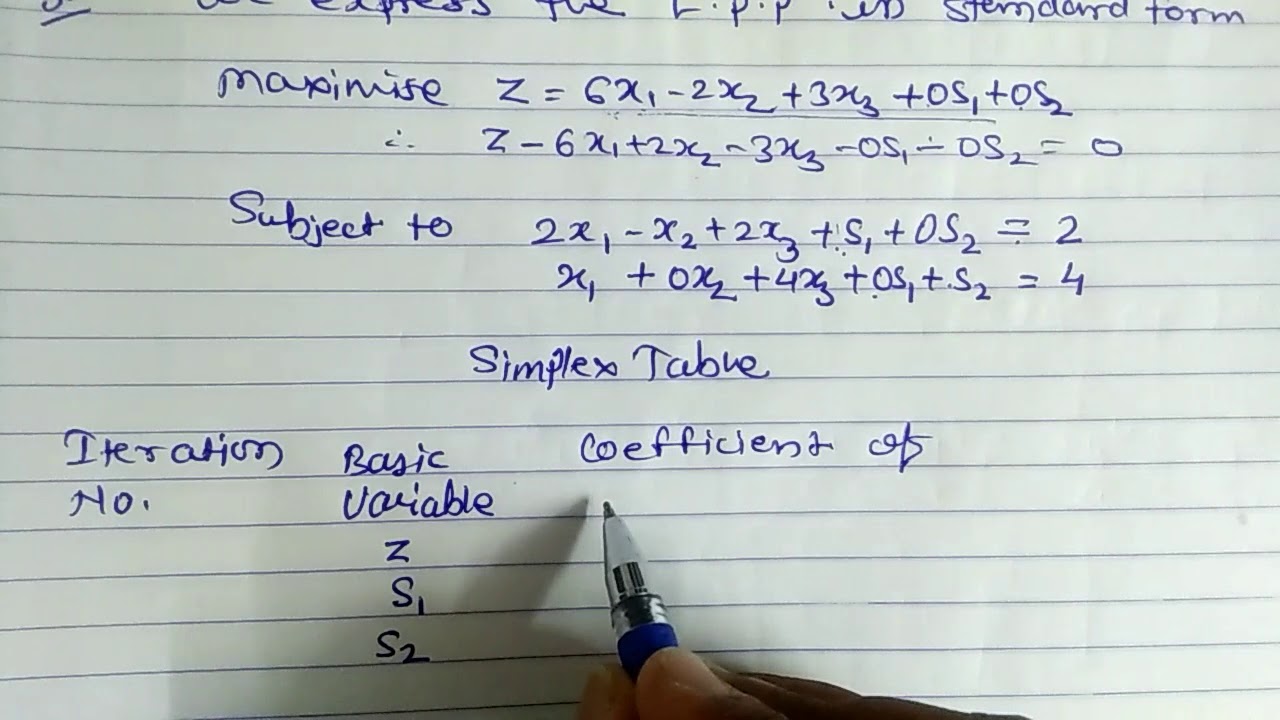 express the L.P.P. in standard form
Maximise Z = 6x₁ - 2x₂ + 3x₃ + 0S₁ + 0S₂
∴ Z - 6x₁ + 2x₂ - 3x₃ - 0S₁ - 0S₂ = 0
Subject to 2x₁ - x₂ + 2x₃ + S₁ + 0S₂ = 2
x₁ + 0x₂ + 4x₃ + 0S₁ + S₂ = 4
Simplex Table
Iteration Basic Coefficient of
No. Variable
Z
S₁
S₂